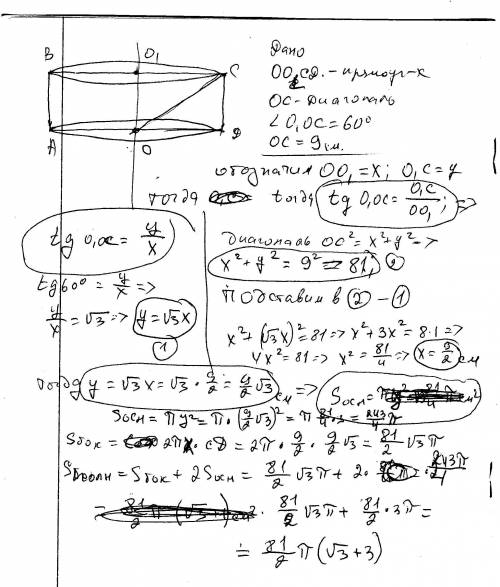 B O₁ C
A O D
Дано
OO₁CD - прямоуг-к
OC - диагональ
∠O₁OC = 60°
OC = 9 см.
обозначим OO₁ = x; O₁C = y
тогда тогда tg O₁OC = O₁C / OO₁; =>
tg O₁OC = y/x
Диагональ OC² = x² + y² =>
x² + y² = 9² => 81; ②
tg 60° = y/x =>
y/x = √3 => y = √3x
①
Подставим в ② - ①
x² + (√3x)² = 81 => x² + 3x² = 81 =>
4x² = 81 => x² = 81/4 => x = 9/2
тогда y = √3x = √3 · 9/2 = 9/2 √3 см => Sосн =
Sосн = πy² = π · (9/2 √3)² = π 81/4 · 3 = 243/4 π
Sбок = 2π · CD = 2π · 9/2 · 9/2 √3 = 81/2 √3π
Sполн = Sбок + 2Sосн = 81/2 √3π + 2 · 243π/4
= 81/2 √3π + 81/2 · 3π =
= 81/2 π (√3 + 3)